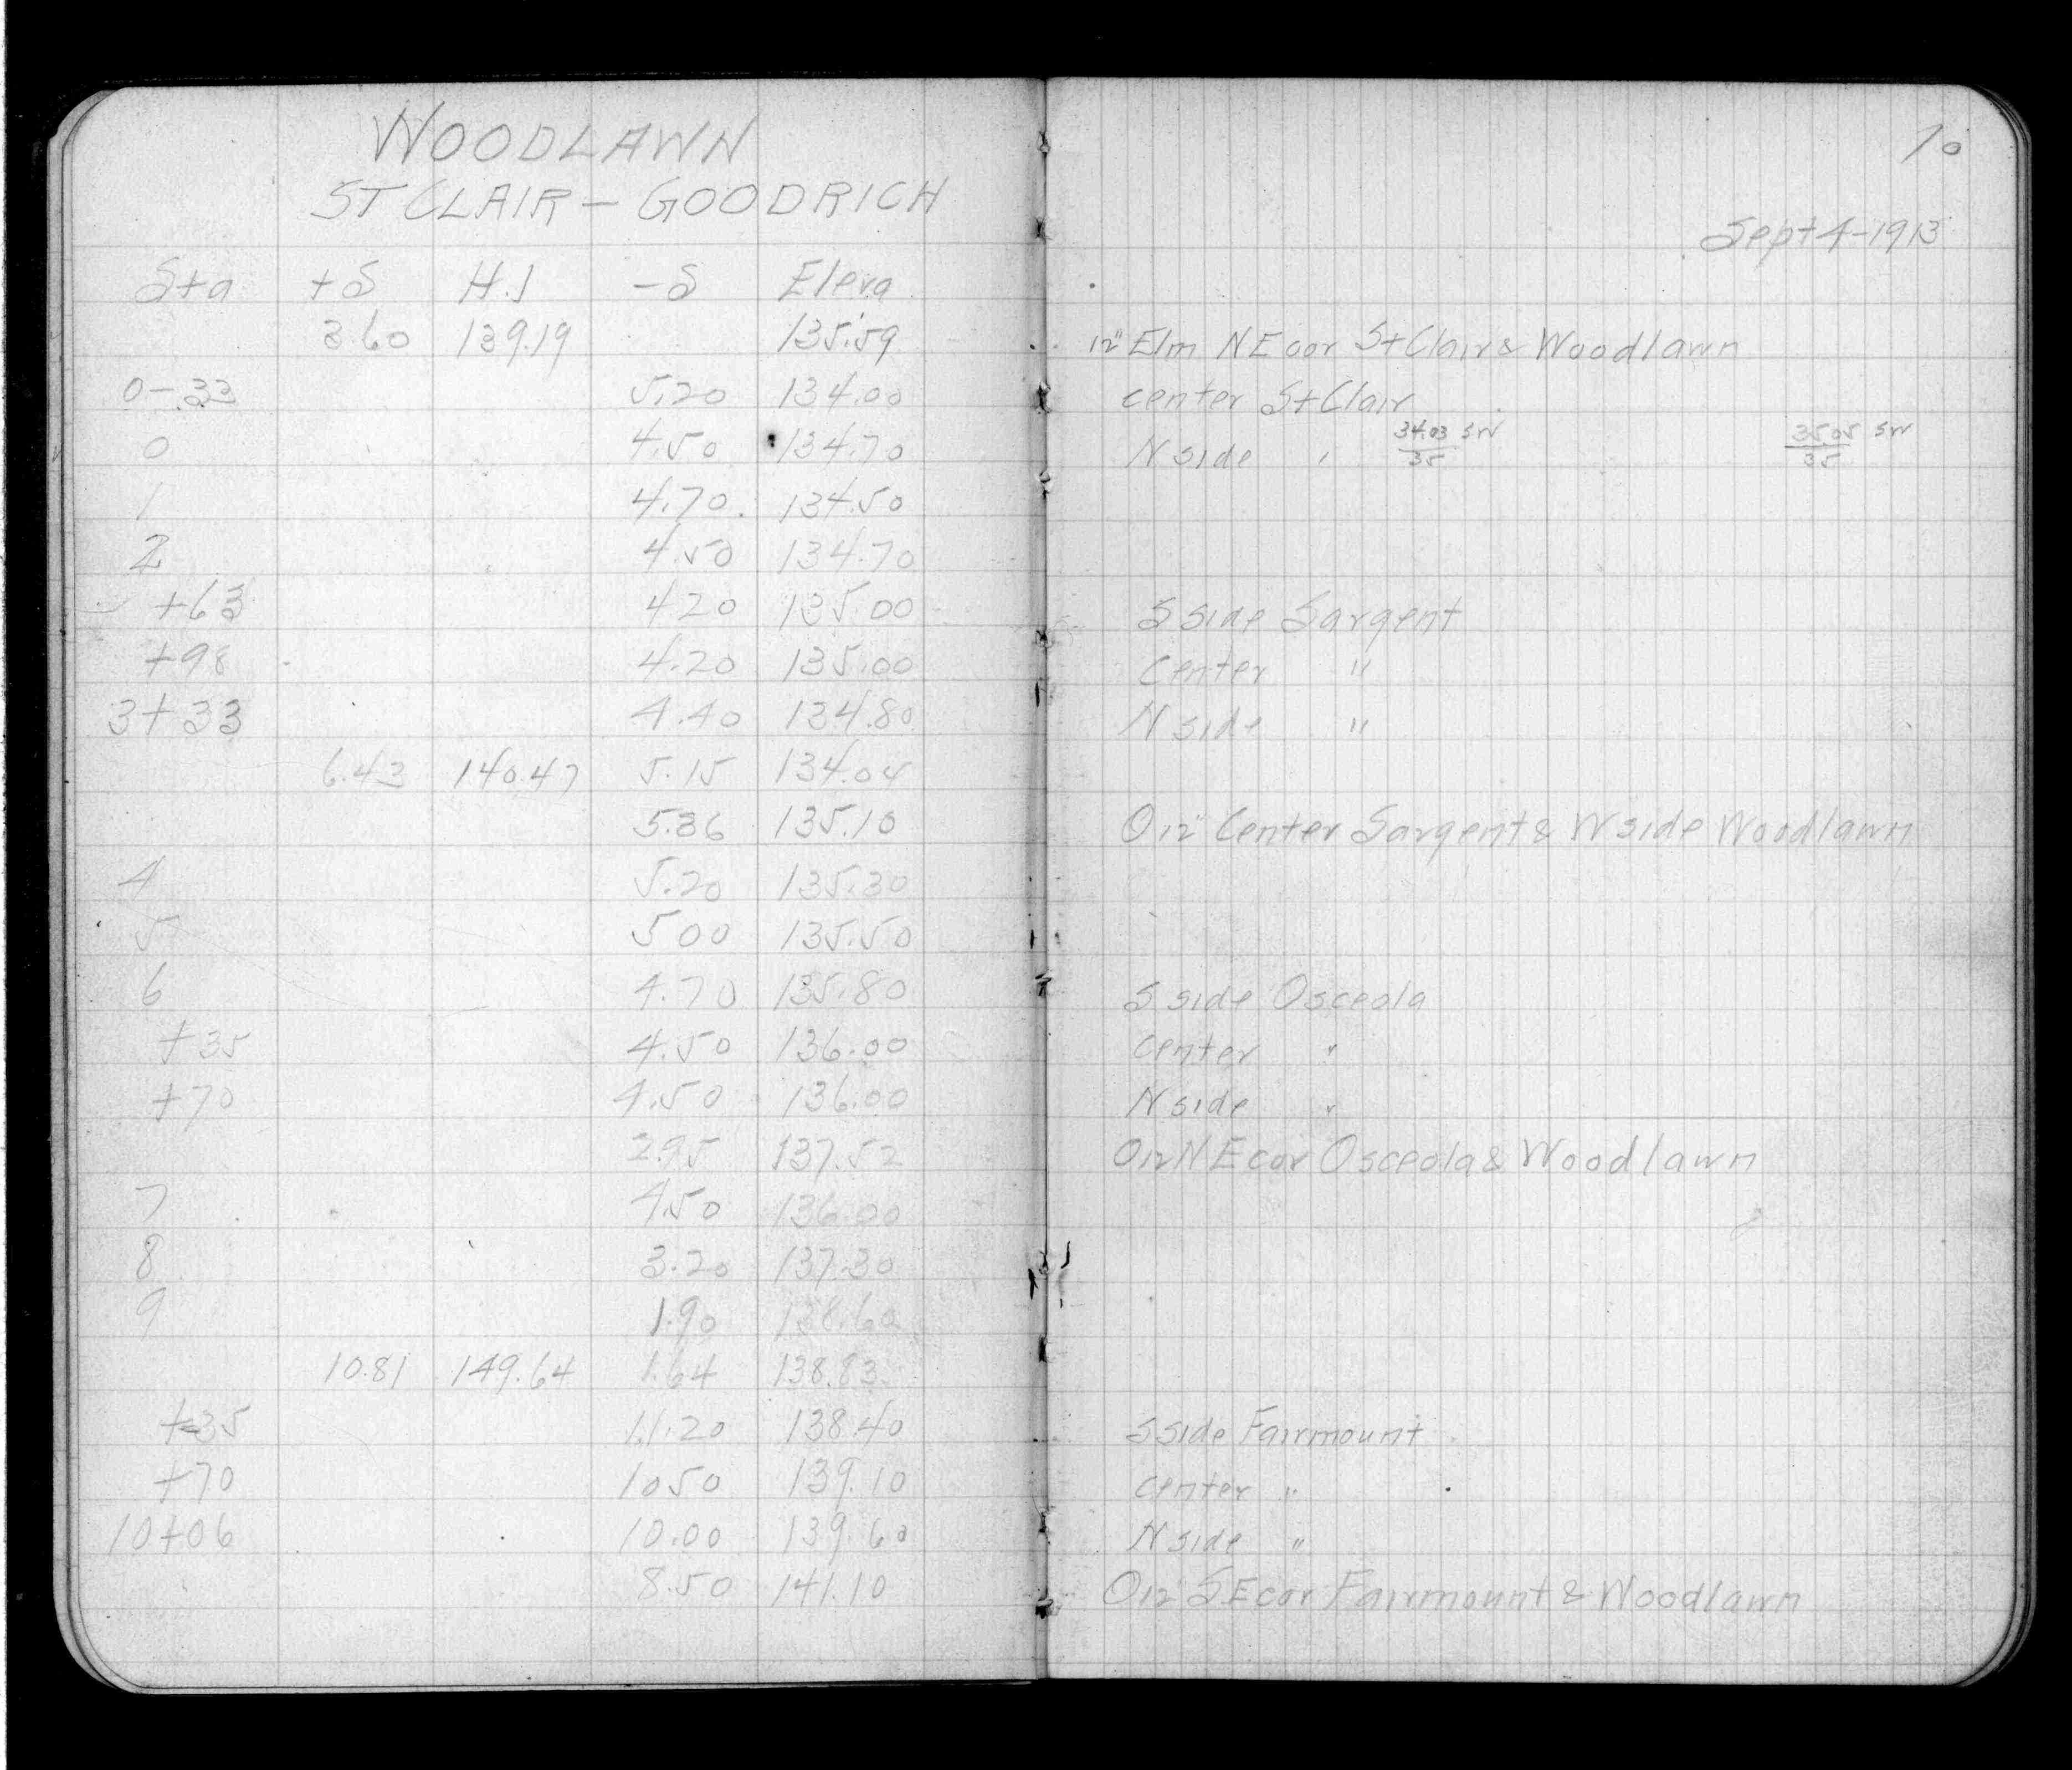 WOODLAWN
ST CLAIR – GOODRICH
10
Sept 4-1913
Sta +S H.I -S Eleva
3.60 139.19 135.59 12" Elm NE cor St Clair & Woodlawn
0-33 5.20 134.00 center St Clair
0 4.50 134.70 N side " 34.03 SW / 35 35.05 SW / 35
1 4.70 134.50
2 4.50 134.70
+63 4.20 135.00 S side Sargent
+98 4.20 135.00 Center "
3+33 4.40 134.80 N side "
6.43 140.47 5.15 134.04
5.36 135.10 O 12" Center Sargent & W side Woodlawn
4 5.20 135.30
5 5.00 135.50
6 4.70 135.80 S side Osceola
+35 4.50 136.00 Center "
+70 4.50 136.00 N side "
2.95 137.52 O 12 NE cor Osceola & Woodlawn
7 4.50 136.00
8 3.20 137.30
9 1.90 138.60
10.81 149.64 1.64 138.83
+35 11.20 138.40 S side Fairmount
+70 10.50 139.10 Center "
10+06 10.00 139.60 N side "
8.50 141.10 O 12" SE cor Fairmount & Woodlawn